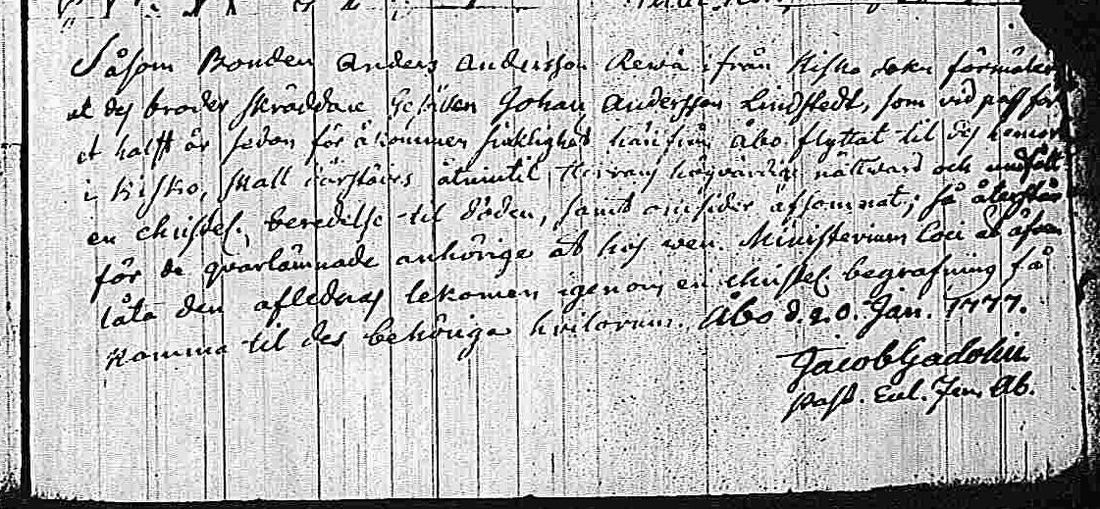 Såsom Bonden Anders Andersson Rewä ifrån Kisko sokn förmäler
at des broder Skräddare Gesällen Johan Andersson Lindstedt, som vid pass för
et halft år sedan för åkommen siuklighet härifrån Åbo flyttat til des hemort
i Kisko, skall därstädes åtniutit Herrans högvärdiga nattvard och undfått
en christel. beredelse til döden, samt omsider afsomnat; så återstår
för de qvarlämnade anhörige at hos wen. Ministerium Loci
låta den aflednas lekamen igenom en christel. begrafning få
komma til des behöriga hvilorum. Åbo d. 20. Jan. 1777.
Jacob Gadolin
Past. Ab.